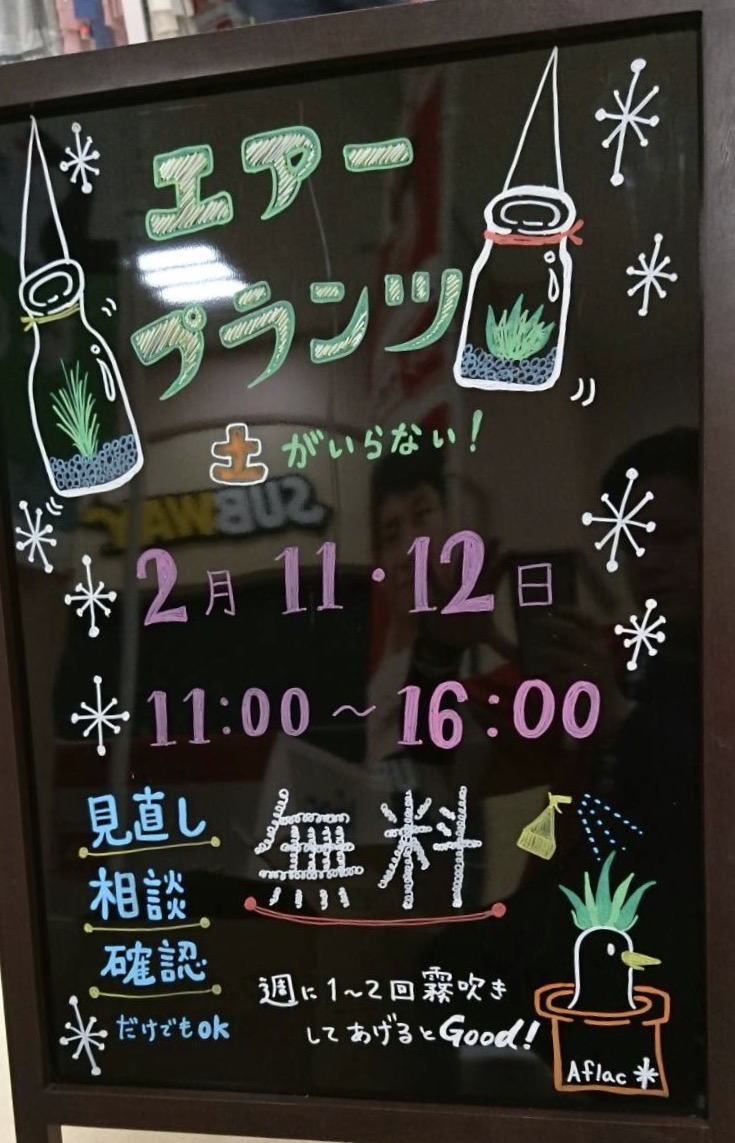 エアー
プランツ
土がいらない!
SUBWAY
2月 11・12日
11:00～16:00
見直し
相談
確認
だけでもok
無料
週に1～2回霧吹き
してあげるとGood!
Aflac